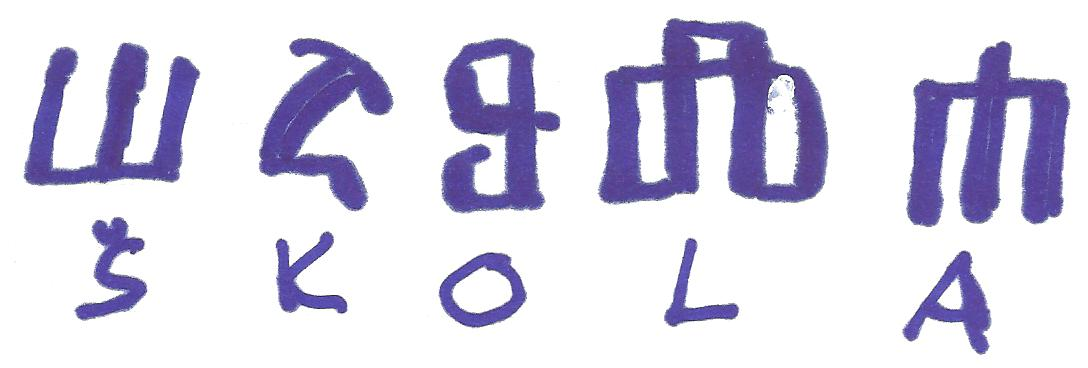 ⰞⰍⰑⰎⰀ
ŠKOLA